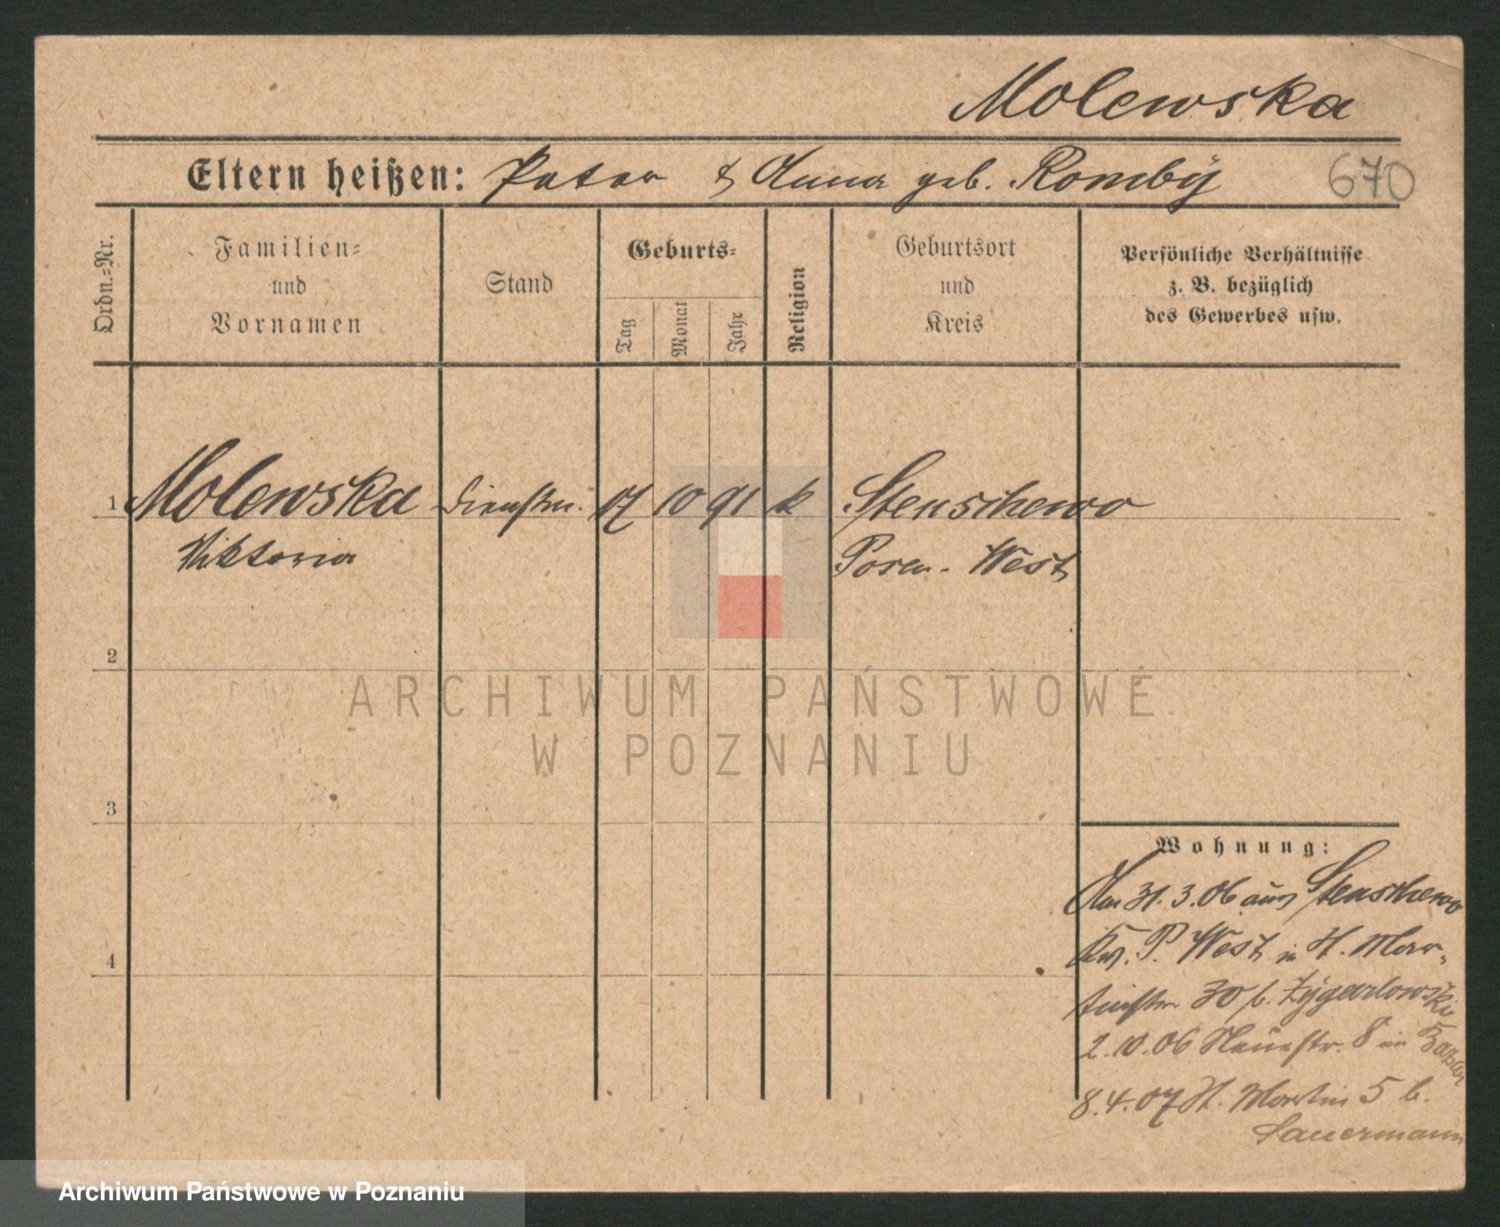 Molewska
Eltern heißen: Peter & Anna geb. Romby
670
Ordn.=Nr.
Familien=
und
Vornamen
Stand
Geburts=
Tag
Monat
Jahr
Religion
Geburtsort
und
Kreis
Persönliche Verhältnisse
z. B. bezüglich
des Gewerbes usw.
1 Molewska Dienstm. 17 10 91 k Stenschewo
Viktoria Posen-West
2
3
4
ARCHIWUM PAŃSTWOWE
W POZNANIU
Wohnung:
Am 31.3.06 aus Stenschewo
Kr. P. West in St. Mar-
tinstr. 30 b. Zygarlowski
2.10.06 Neuestr. 8 im Bazar
8.4.07 St. Martin 5 b.
Sauermann
Archiwum Państwowe w Poznaniu